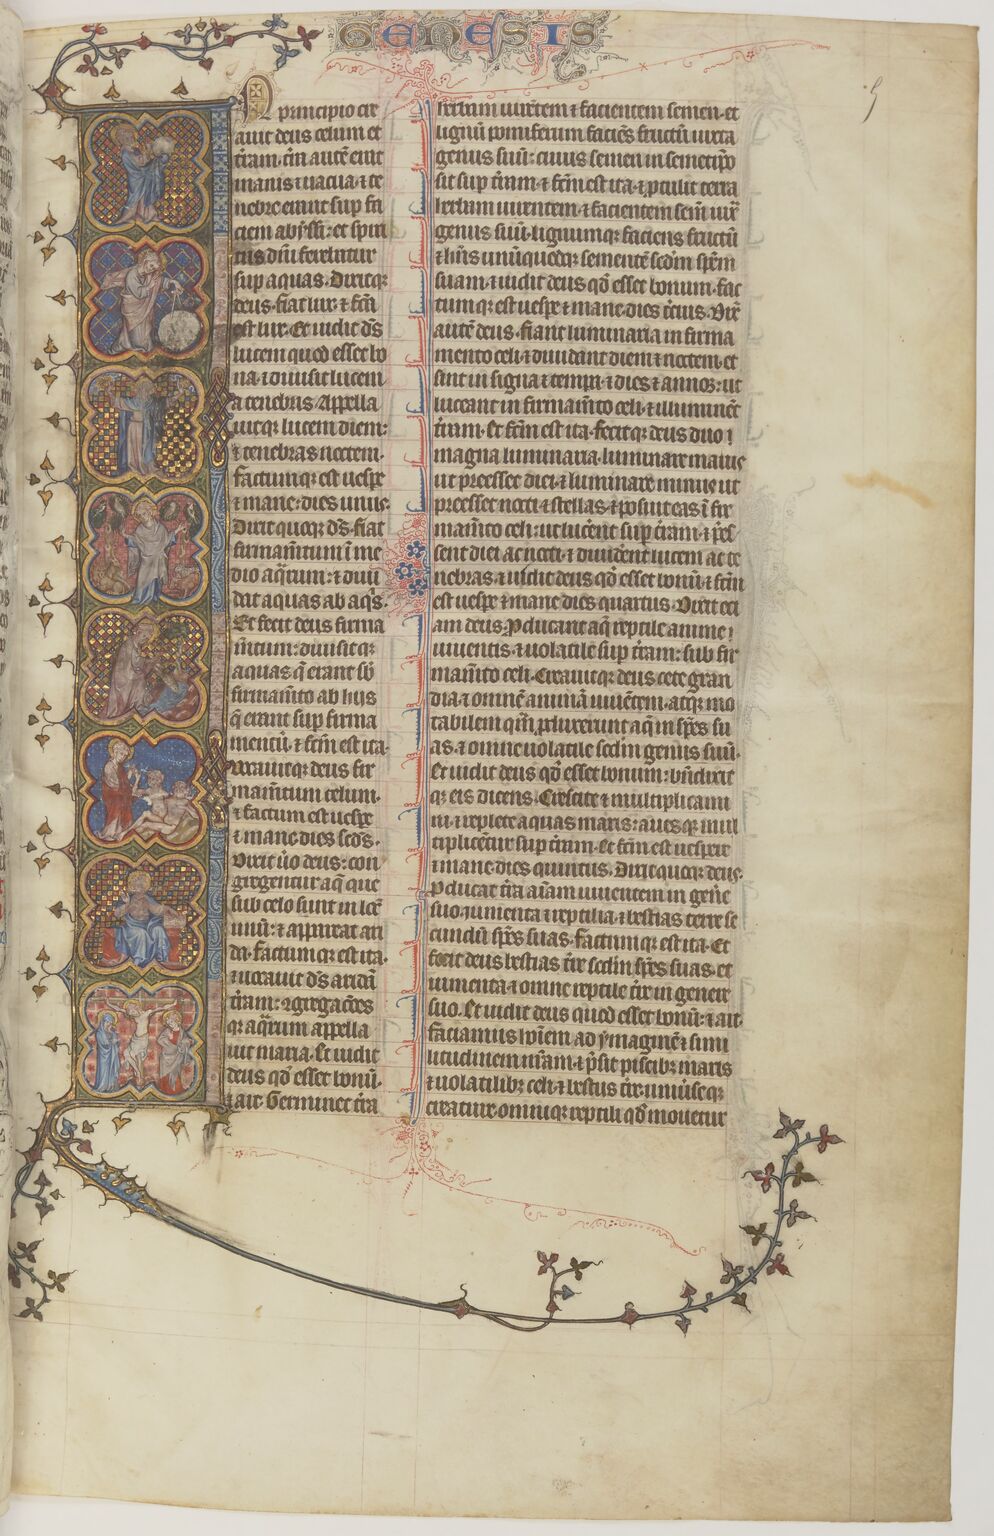 GENESIS
5
N principio cre
auit deus celum et
t̄ram. t̄ra autē erat
inanis ⁊ uacua. ⁊ te
nebre erant sup fa
ciem abyssi: et spiri
tus dn̄i ferebatur
sup aquas. Dixitqꝫ
deus. fiat lux. ⁊ fc̄a
est lux. Et uidit d̄s
lucem quod esset bo
na. ⁊ diuisit lucem
a tenebris. Appella
uitqꝫ lucem diem:
⁊ tenebras noctem.
factumqꝫ est uespe
⁊ mane. dies unus.
Dixit quoqꝫ d̄s. fiat
firmam̄tum ī me
dio aq̄rum: ⁊ diui
dat aquas ab aq̄s.
Et fecit deus firma
m̄tum: diuisitqꝫ
aquas q̄ erant sb̄
firmam̄to ab hiis
q̄ erant sup firma
mentū. ⁊ fc̄m est ita.
vocauitqꝫ deus fir
mam̄tum celum.
⁊ factum est uespe
⁊ mane. dies sc̄ds.
Dixit u̇o deus: con
gregentur aq̄ que
sub celo sunt in loc̄
unū: ⁊ appareat ari
da. factumqꝫ est ita.
⁊ uocauit d̄s aridā
t̄ram: ꝯgregac̄oes
qꝫ aq̄rum appella
uit maria. Et uidit
deus qd̄ esset bonū.
⁊ ait. Germinet t̄ra
herbam uirētem ⁊ facientem semen. et
lignū pomiferum faciēs fructū iuxta
genus suū: cuius semen in semetip̄o
sit sup t̄ram. ⁊ fc̄m est ita. ⁊ ꝓtulit terra
herbam uirentem. ⁊ facientem sem̄ iux̄
genus suū. lignumqꝫ faciens fructū
⁊ hn̄s unūquodqꝫ sementē sc̄dm spēm
suam. ⁊ uidit deus qd̄ esset bonum. fac
tumqꝫ est uespe ⁊ mane dies t̄cius. Dix̄
autē deus. fiant luminaria in firma
mento celi. ⁊ diuidant diem ⁊ noctem. et
sint in signa ⁊ tempa. ⁊ dies ⁊ annos: ut
luceant in firmam̄to celi. ⁊ illuminēt
t̄ram. Et fc̄m est ita. fecitqꝫ deus duo
magna luminaria. luminare maius
ut preesset diei. ⁊ luminare minus ut
preesset nocti. ⁊ stellas. ⁊ posuit eas ī fir
mam̄to celi: ut lucerēt sup t̄ram. ⁊ p̄es
sent diei ac nocti. ⁊ diuiderēt lucem ac te
nebras. ⁊ uidit deus qd̄ esset bonū. ⁊ fc̄m
est uespe ⁊ mane dies quartus. Dixit eci
am deus. ꝓducant aq̄ reptile anime
uiuentis. ⁊ uolatile sup t̄ram: sub fir
mam̄to celi. Creauitqꝫ deus cete gran
dia. ⁊ omnē animā uiuētem. atqꝫ mo
tabilem qm̄ ꝓduxerunt aq̄ in spēs su
as. ⁊ omne uolatile sc̄dm genus suū.
Et uidit deus qd̄ esset bonum: bn̄dixit
qꝫ eis dicens. Crescite ⁊ multiplicami
ni. ⁊ replete aquas maris: auesqꝫ mul
tiplicētur sup t̄ram. Et fc̄m est uespere
⁊ mane. dies quintus. Dixit quoqꝫ deus.
ꝓducat t̄ra aīam uiuentem in gen̄e
suo. iumenta ⁊ reptilia. ⁊ bestias terre se
cundū spēs suas. factumqꝫ est ita. Et
fecit deus bestias t̄re sc̄dm spēs suas. et
iumenta. ⁊ omne reptile t̄re in genere
suo. Et uidit deus quod esset bonū: ⁊ ait.
faciamus hoīem ad ymaginē ⁊ simi
litudinem nr̄am. ⁊ p̄sit piscibꝫ maris
⁊ uolatilibꝫ celi. ⁊ bestiis t̄re. uniu̇seqꝫ
creature. omniqꝫ reptili qd̄ mouetur